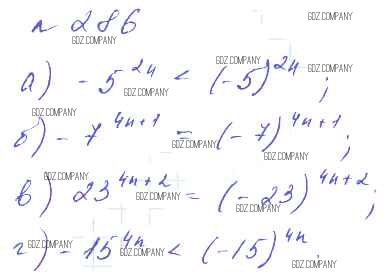 n 286
GDZ.COMPANY GDZ.COMPANY
а) - 5^2n < (-5)^2n ;
GDZ.COMPANY GDZ.COMPANY GDZ.COMPANY
б) - 7^4n+1 = (-7)^4n+1 ;
GDZ.COMPANY GDZ.COMPANY GDZ.COMPANY GDZ.COMPANY
в) 23^4n+2 = (-23)^4n+2 ;
GDZ.COMPANY GDZ.COMPANY GDZ.COMPANY GDZ.COMPANY
г) - 15^4n < (-15)^4n .
GDZ.COMPANY GDZ.COMPANY GDZ.COMPANY GDZ.COMPANY